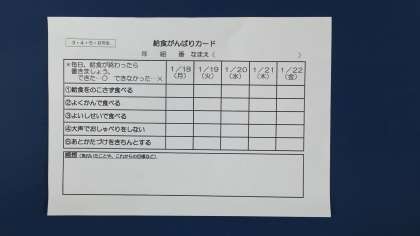 3・4・5・6年生
給食がんばりカード
年 組 番 なまえ( )
*毎日、給食が終わったら
書きましょう。
できた…○ できなかった…×
1/18
(月)
1/19
(火)
1/20
(水)
1/21
(木)
1/22
(金)
①給食をのこさず食べる
②よくかんで食べる
③よいしせいで食べる
④大声でおしゃべりをしない
⑤あとかたづけをきちんとする
感想(気がいたことや、これからの目標など)